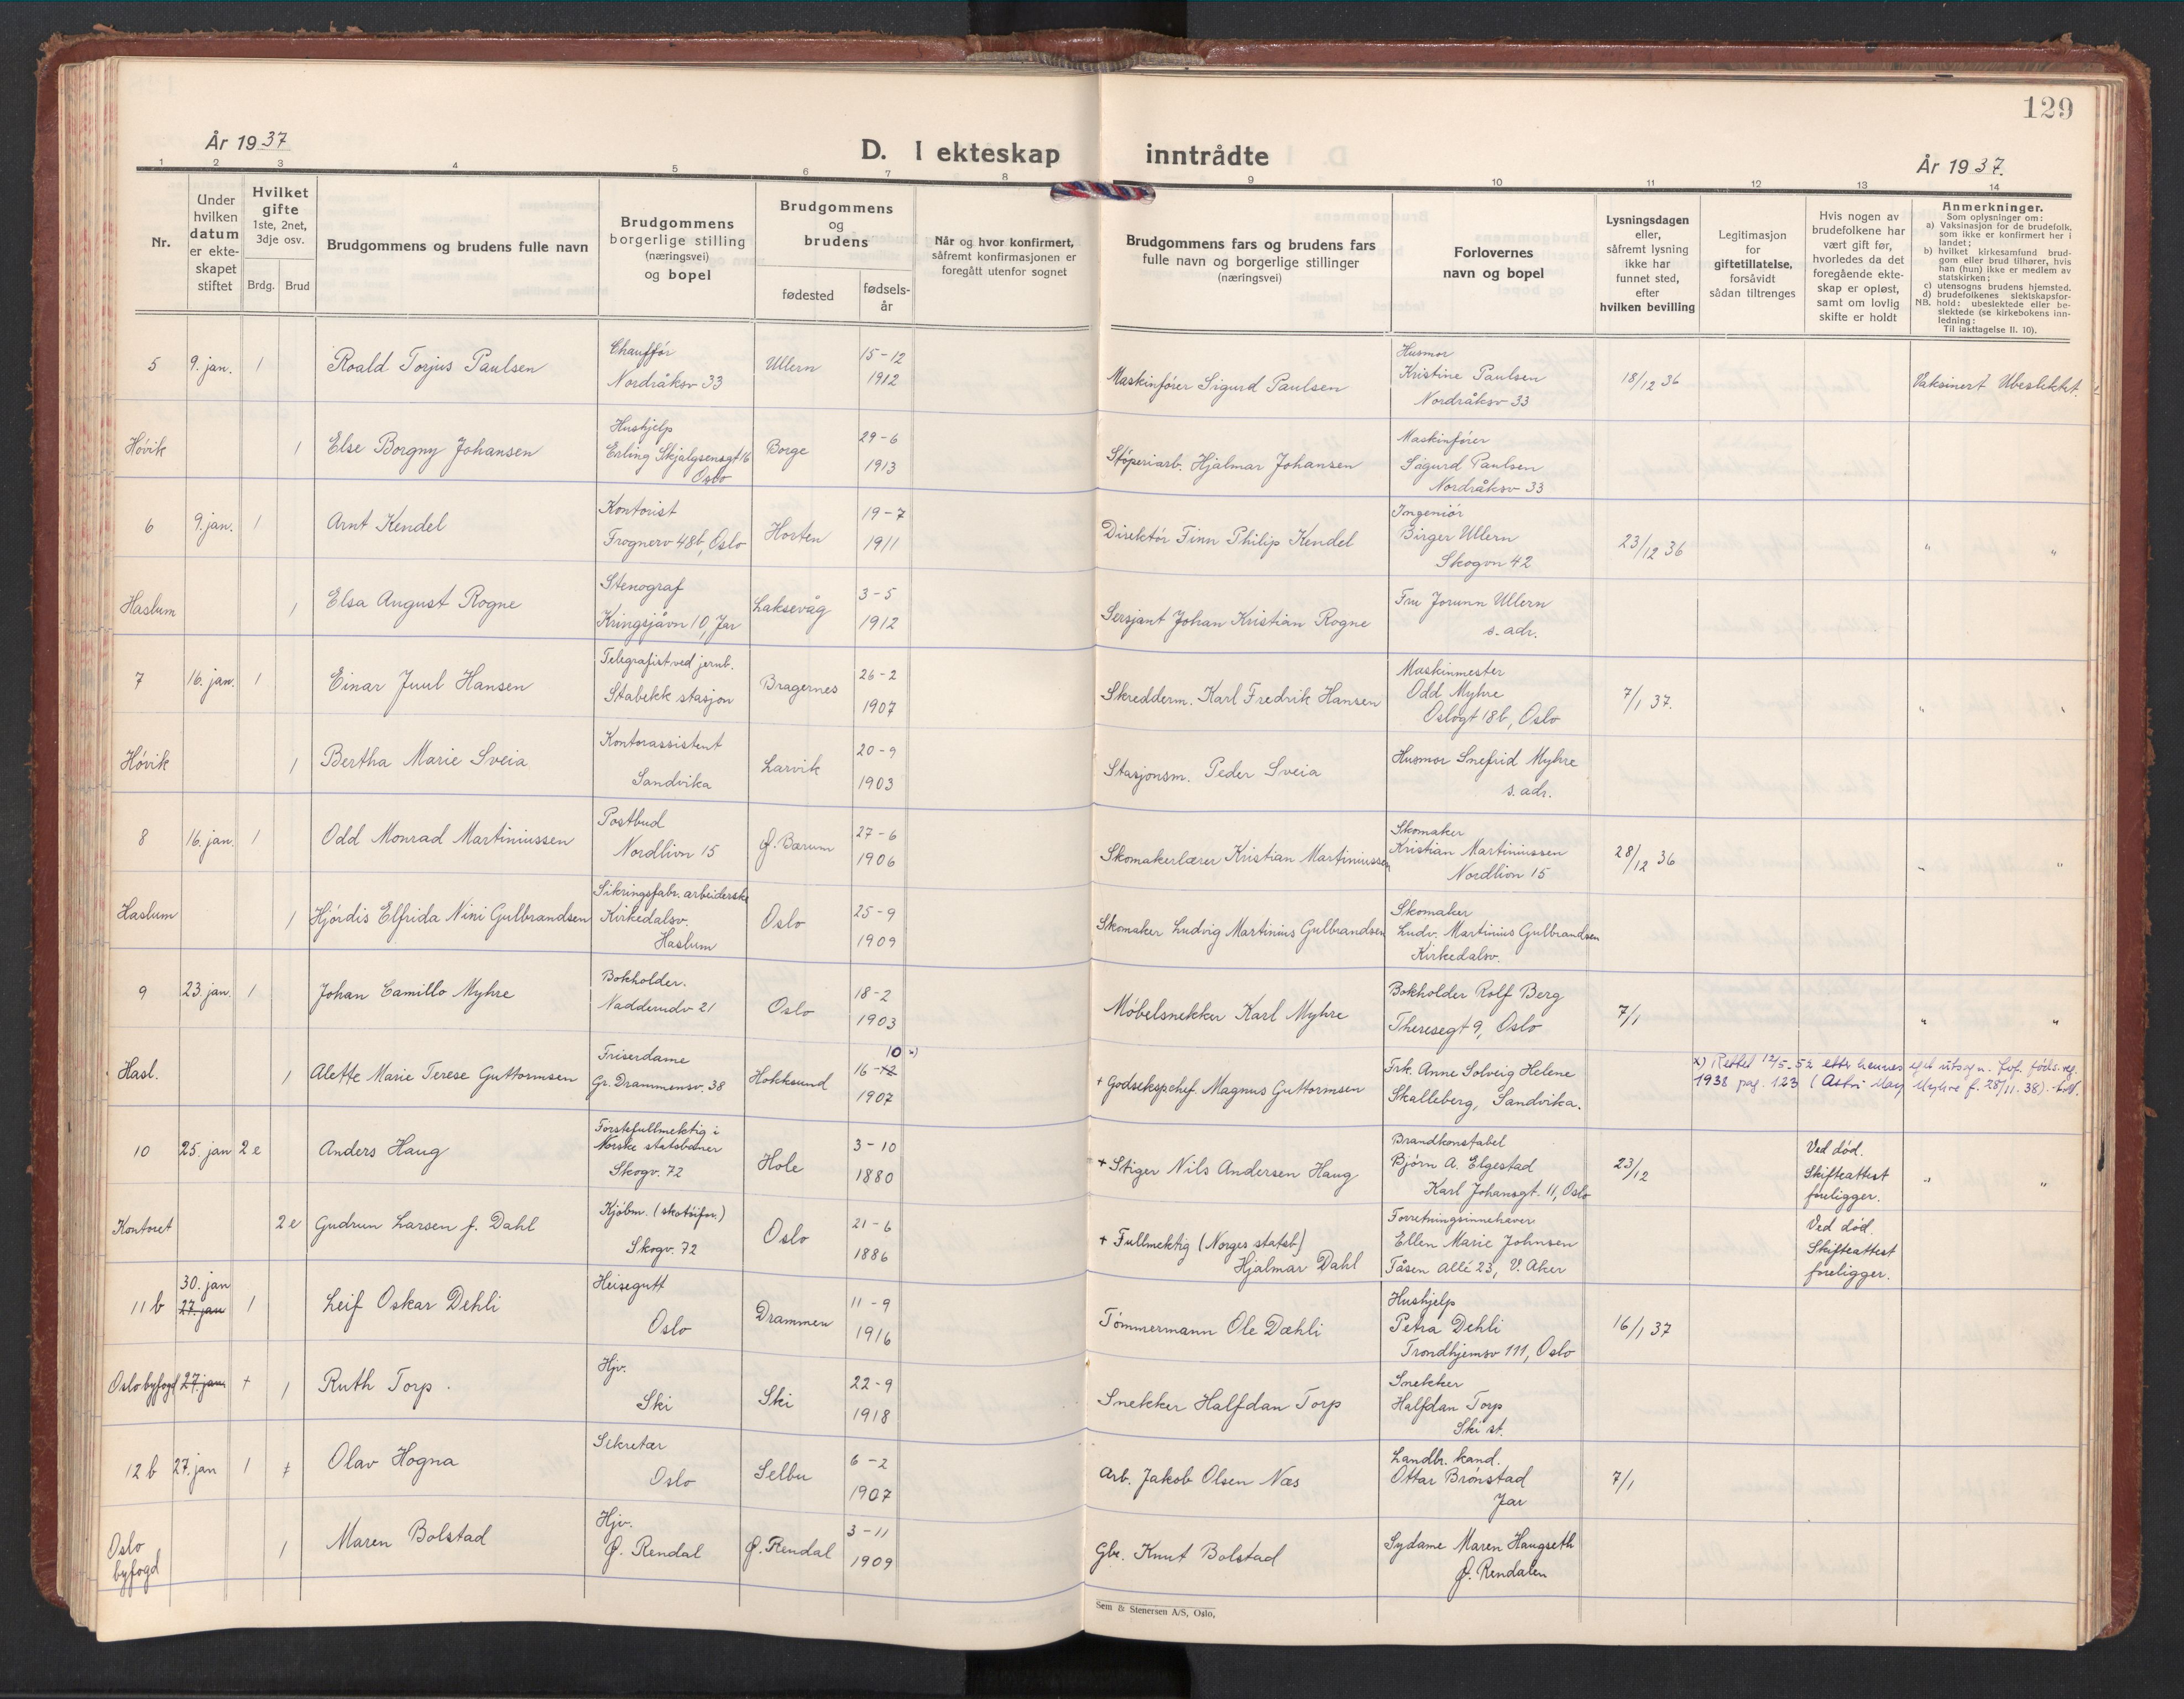 129
År 1937
D. I ekteskap inntrådte
År 1937.
1 2 3 4 5 6 7 8 9 10 11 12 13 14
Nr.
Under hvilken datum er ekte-skapet stiftet
Hvilket gifte 1ste, 2net, 3dje osv.
Brdg. Brud
Brudgommens og brudens fulle navn
Brudgommens borgerlige stilling (næringsvei) og bopel
Brudgommens og brudens
fødested
fødsels-år
Når og hvor konfirmert, såfremt konfirmasjonen er foregått utenfor sognet
Brudgommens fars og brudens fars fulle navn og borgerlige stillinger (næringsvei)
Forlovernes navn og bopel
Lysningsdagen eller, såfremt lysning ikke har funnet sted, efter hvilken bevilling
Legitimasjon for giftetillatelse, forsåvidt sådan tiltrenges
Hvis nogen av brudefolkene har vært gift før, hvorledes da det foregående ekte-skap er opløst, samt om lovlig skifte er holdt
Anmerkninger.
Som oplysninger om:
a) Vaksinasjon for de brudefolk, som ikke er konfirmert her i landet;
b) hvilket kirkesamfund brud-gom eller brud tilhører, hvis han (hun) ikke er medlem av statskirken;
c) utensogns brudens hjemsted.
d) brudefolkenes slektskapsfor-hold: ubeslektede eller be-slektede (se kirkebokens inn-ledning:
NB.
Til iakttagelse II. 10).
5 9. jan. 1 Roald Torjus Paulsen Chauffør Nordråksv 33 Ullern 15-12 1912 Maskinfører Sigurd Paulsen Husmor Kristine Paulsen Nordråksv 33 18/12 36 Vaksinert Ubeslektet.
Høvik 1 Else Borgny Johansen Hushjelp Erling Skjalgsensgt 16 Oslo Borge 29-6 1913 Støperiarb. Hjalmar Johansen Maskinfører Sigurd Paulsen Nordråksv 33
6 9. jan. 1 Arnt Kendel Kontorist Frognerv 48b, Oslo Horten 19-7 1911 Direktør Finn Philip Kendel Ingeniør Birger Ullern Skogvn 42 23/12 36 " "
Haslum 1 Elsa August Rogne Stenograf Kringsjåvn 10, Jar Laksevåg 3-5 1912 Sersjant Johan Kristian Rogne Fru Jorunn Ullern s. adr.
7 16. jan. 1 Einar Juul Hansen Telegrafist ved jernb. Stabekk stasjon Bragernes 26-2 1907 Skredderm. Karl Fredrik Hansen Maskinmester Odd Myhre Oslogt 18b, Oslo 7/1 37. " "
Høvik 1 Bertha Marie Sveia Kontorassistent Sandvika Larvik 20-9 1903 Stasjonsm. Peder Sveia Husmor Snefrid Myhre s. adr.
8 16. jan. 1 Odd Monrad Martiniussen Postbud Nordlivn 15 Ø. Bærum 27-6 1906 Skomakerlærer Kristian Martiniussen Skomaker Kristian Martiniussen Nordlivn 15 28/12 36 " "
Haslum 1 Hjørdis Elfrida Nini Gulbrandsen Sikringsfabr. arbeiderske Kirkedalsv. Haslum Oslo 25-9 1909 Skomaker Ludvig Martinius Gulbrandsen Skomaker Ludv. Martinius Gulbrandsen Kirkedalsv.
9 23. jan. 1 Johan Camillo Myhre Bokholder. Nadderudv 21 Oslo 18-2 1903 Møbelsnekker Karl Myhre Bokholder Rolf Berg Theresegt 9, Oslo 7/1 " "
Hasl. 1 Alette Marie Terese Guttormsen Friserdame Gr. Drammensv. 38 Hokksund 10 x) 16-12 1907 + Godsekspchef. Magnus Guttormsen Frk. Anne Solveig Helene Skalleberg, Sandvika.
x) Rettet 12/5-52 etter hennes eget utsagn. Jvf. føds.reg. 1938 pag. 123 (Astri May Myhre f. 28/11. 38).
10 25. jan 2e Anders Haug Førstefullmektig i Norske statsbaner Skogv. 72 Hole 3-10 1880 + Stiger Nils Andersen Haug Brandkonstabel Bjørn A. Elgestad Karl Johansgt. 11, Oslo 23/12 Ved død. Skifteattest foreligger. " "
Kontoret 2e Gudrun Larsen f. Dahl Kjøbm. (skotøifor.) Skogv. 72 Oslo 21-6 1886 + Fullmektig (Norges statsb) Hjalmar Dahl Forretningsinnehaver Ellen Marie Johnsen Tåsen Allé 23, V. Aker Ved død. Skifteattest foreligger.
11 b 30. jan 27. jan 1 Leif Oskar Dehli Heisegutt Oslo Drammen 11-9 1916 Tømmermann Ole Dæhli Hushjelp Petra Dehli Trondhjemsv 111, Oslo 16/1 37
Oslo byfogd 27. jan 1 Ruth Torp. Hjv. Ski Ski 22-9 1918 Snekker Halfdan Torp Snekker Halfdan Torp Ski st.
12 b 27. jan 1 Olav Hogna Sekretær Oslo Selbu 6-2 1907 Arb. Jakob Olsen Næs Landbr. kand. Ottar Brønstad Jar 7/1
Oslo byfogd 1 Maren Bolstad Hjv. Ø. Rendal Ø. Rendal 3-11 1909 Gbr. Knut Bolstad Sydame Maren Haugseth Ø. Rendalen
Sem & Stenersen A/S, Oslo.